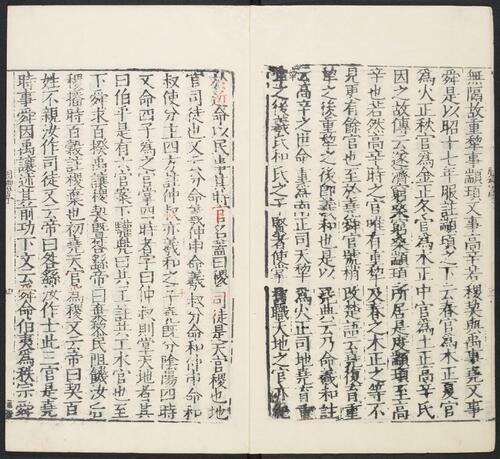 無隔故重犂事顓頊又事高辛若稷契與禹事堯又事
舜是以昭十七年服註顓頊之下云春官為木正夏官
為火正秋官為金正冬官為水正中官為土正高辛氏
因之故傳云遂濟窮桑窮桑顓頊所居是度顓頊至高
辛也若然高辛時之官唯有重犂及春之木正之等不
見更有餘官也至於堯舜官號稍改楚語云堯復育重
犂之後重犂之後即羲和也是以堯典云乃命羲和註
云高辛之世命重為南正司天犂為火正司地堯育重
犂之後羲氏和氏之子賢者使掌舊職天地之官亦紀
於近命以民事其時官名蓋曰稷司徒是天官稷也地
官司徒也又云分命羲仲申命羲叔分命和仲申命和
叔使分主四方註仲叔亦羲和之子堯既分陰陽四時
又命四子為之官掌四時者字曰仲叔則掌天地者其
曰伯乎是有六官案下驩兠曰共工註共工水官也至
下舜求百揆禹讓稷契暨咎繇帝曰棄黎民阻飢汝后
稷播時百穀註稷棄也初堯天官為稷又云帝曰契百
姓不親汝作司徒又云帝曰咎繇汝作士此三官是堯
時事舜因禹讓述其前功下文云舜命伯夷為秩宗舜